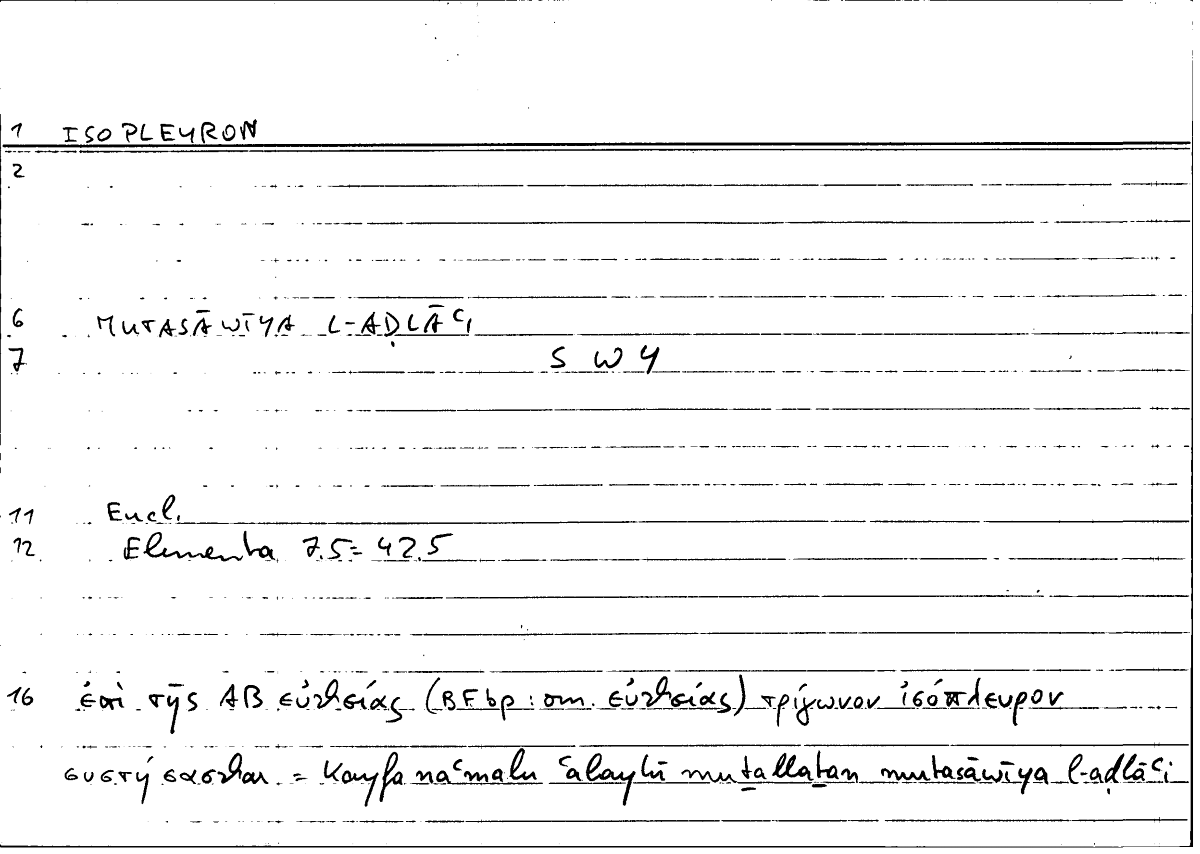 1 ISOPLEYRON
2
6 MUTASĀWĪYA L-AḌLĀʿI
7 S W Y
11 Eucl.
12 Elementa 7.5 = 42.5
16 ἐπὶ τῆς AB εὐθείας (BFbp : om. εὐθείας) τρίγωνον ἰσόπλευρον
συστήσασθαι = Kayfa naʿmalu ʿalayhi muṯallaṯan mutasāwīya l-aḍlāʿi